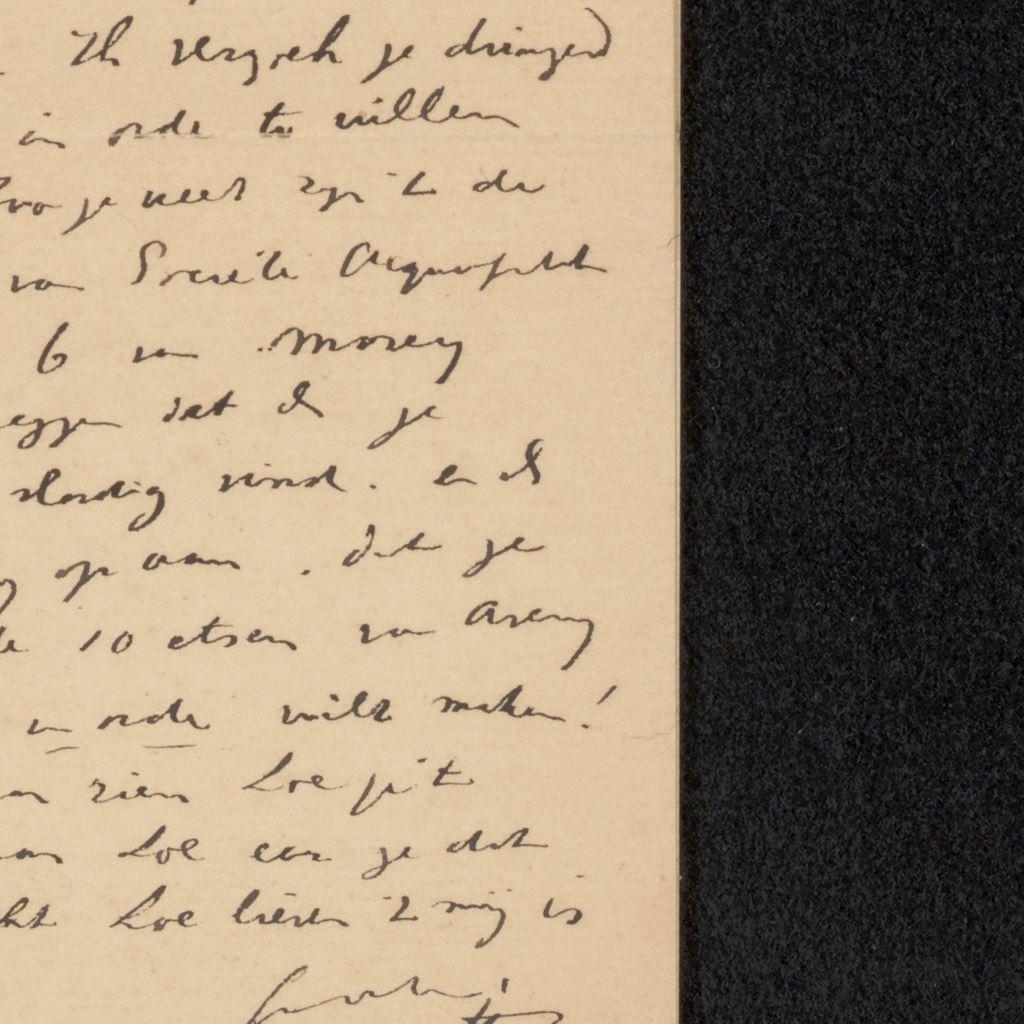 Ik verzoek je dringend
in orde te willen
je weet zijn 't de
van Société Aquafort
6 van Morey
eggen dat ik je
slordig vind. en ik
op aan. dat je
de 10 etsen van Areny
in orde wilt maken!
zien hoe je 't
hoe eer je dat
ht hoe liever 't mij is